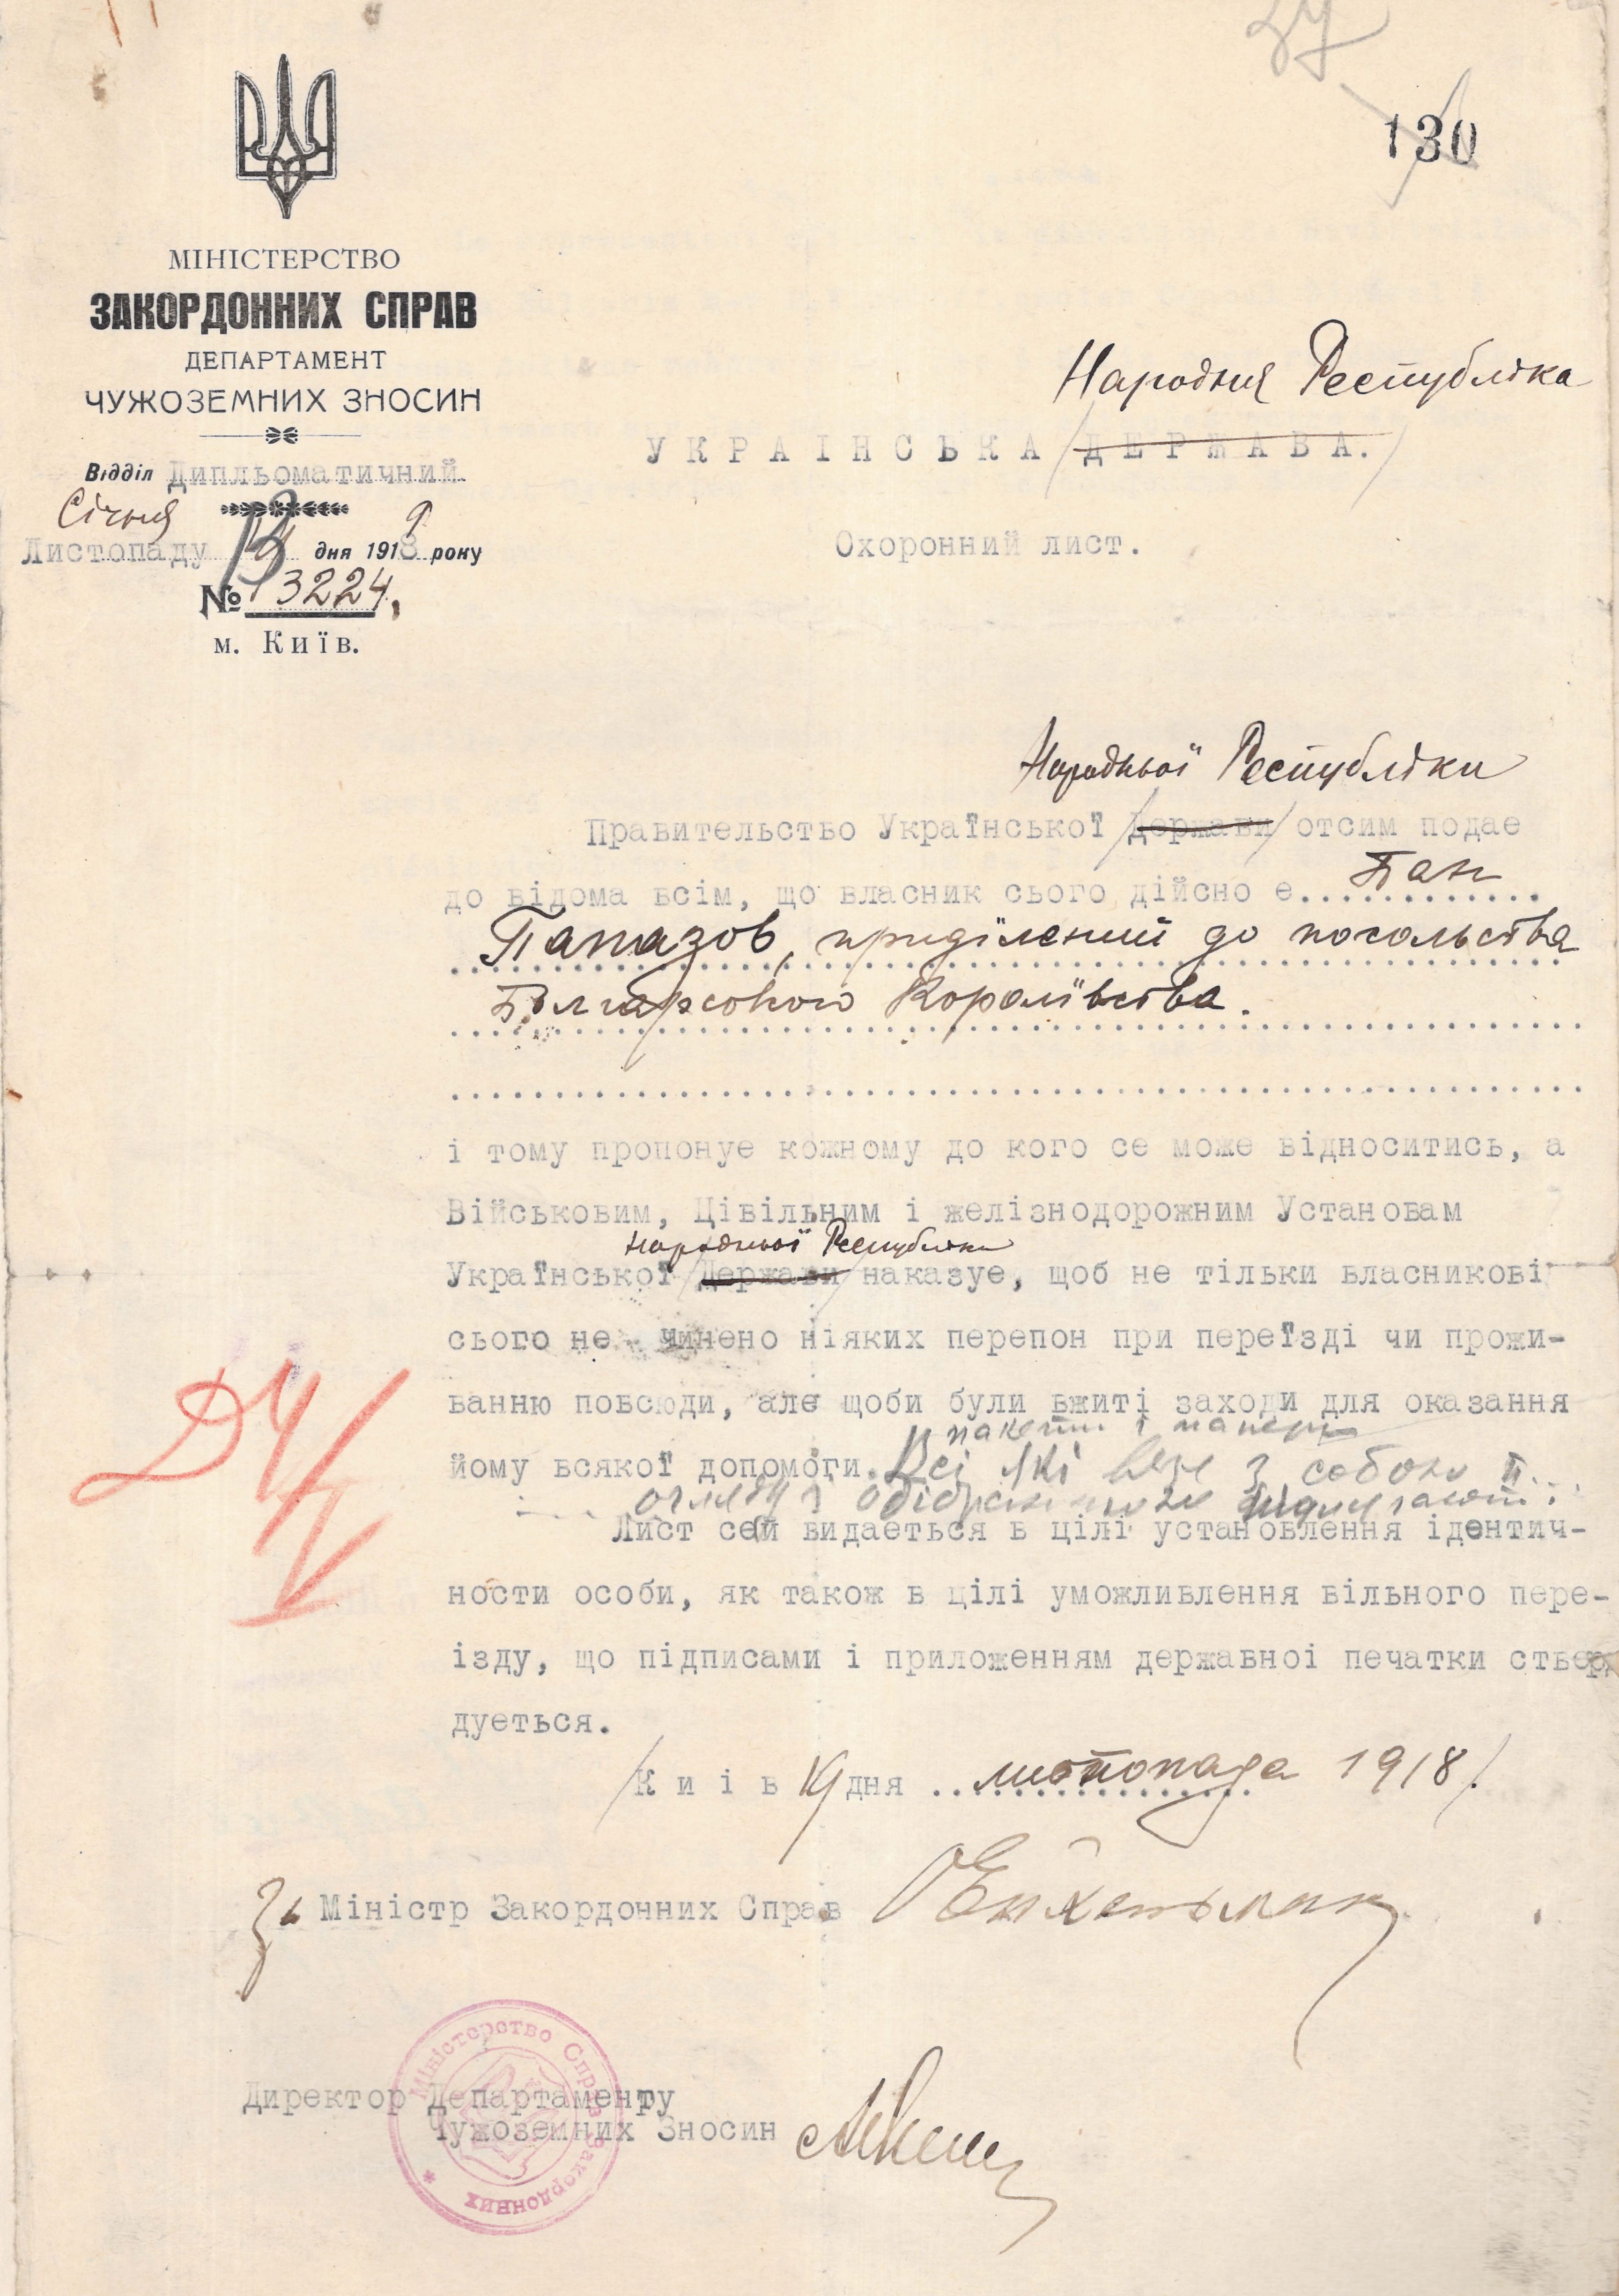 130
МІНІСТЕРСТВО
ЗАКОРДОННИХ СПРАВ
ДЕПАРТАМЕНТ
ЧУЖОЗЕМНИХ ЗНОСИН
Відділ Дипльоматичний
Січня
Листопаду дня 1918 9 року
№ 13224.
м. Київ.
Народня Республіка
УКРАІНСЬКА /ДЕРЖАВА./
Охоронний лист.
Народньоі Республіки
Правительство Украӥнськоӥ /Держави/ отсим подае
до відома всім, що власник сього дійсно е. Пан
Папазов, приділений до посольства
Болгарського Королівства.
і тому пропонуе кожному до кого се може відноситись, а
Військовим, Цівільним і желізнодорожним Установам
Народньоі Республіки
Украӥнськоӥ /Держави/ наказуе, щоб не тільки власникові
сього не чинено ніяких перепон при переӥзді чи прожи-
ванню повсюди, але щоби були вжиті заходи для оказання
пакети і папери
йому всякоӥ допомоги. Всі які везе з собою п.
огляду і
Лист сей видаеться в цілі установлення ідентич-
ности особи, як також в цілі уможливлення вільного пере-
ізду, що підписами і приложенням державноі печатки ствер
дуеться.
/Киів 19 дня листопада 1918/.
За Міністр Закордонних Справ
Директор Департаменту
Чужоземних Зносин
Міністерство Справ Закордонних